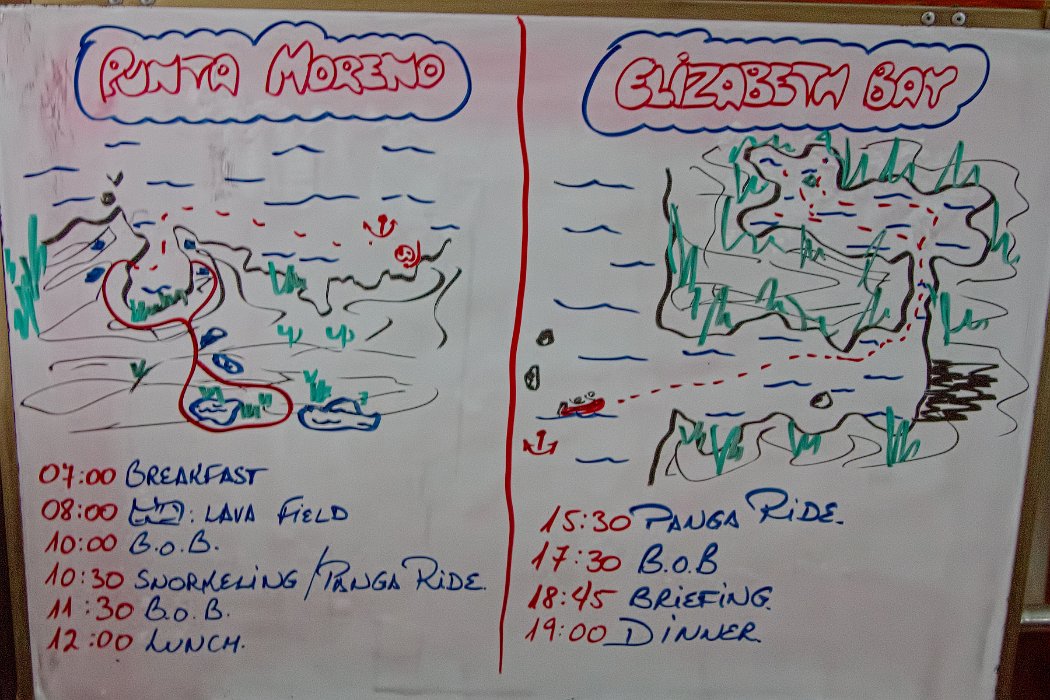 PUNTA MORENO
07:00 BREAKFAST
08:00 : LAVA FIELD
10:00 B.O.B.
10:30 SNORKELING/PANGA RIDE.
11:30 B.O.B.
12:00 LUNCH.
ELIZABETH BAY
15:30 PANGA RIDE.
17:30 B.O.B
18:45 BRIEFING.
19:00 DINNER